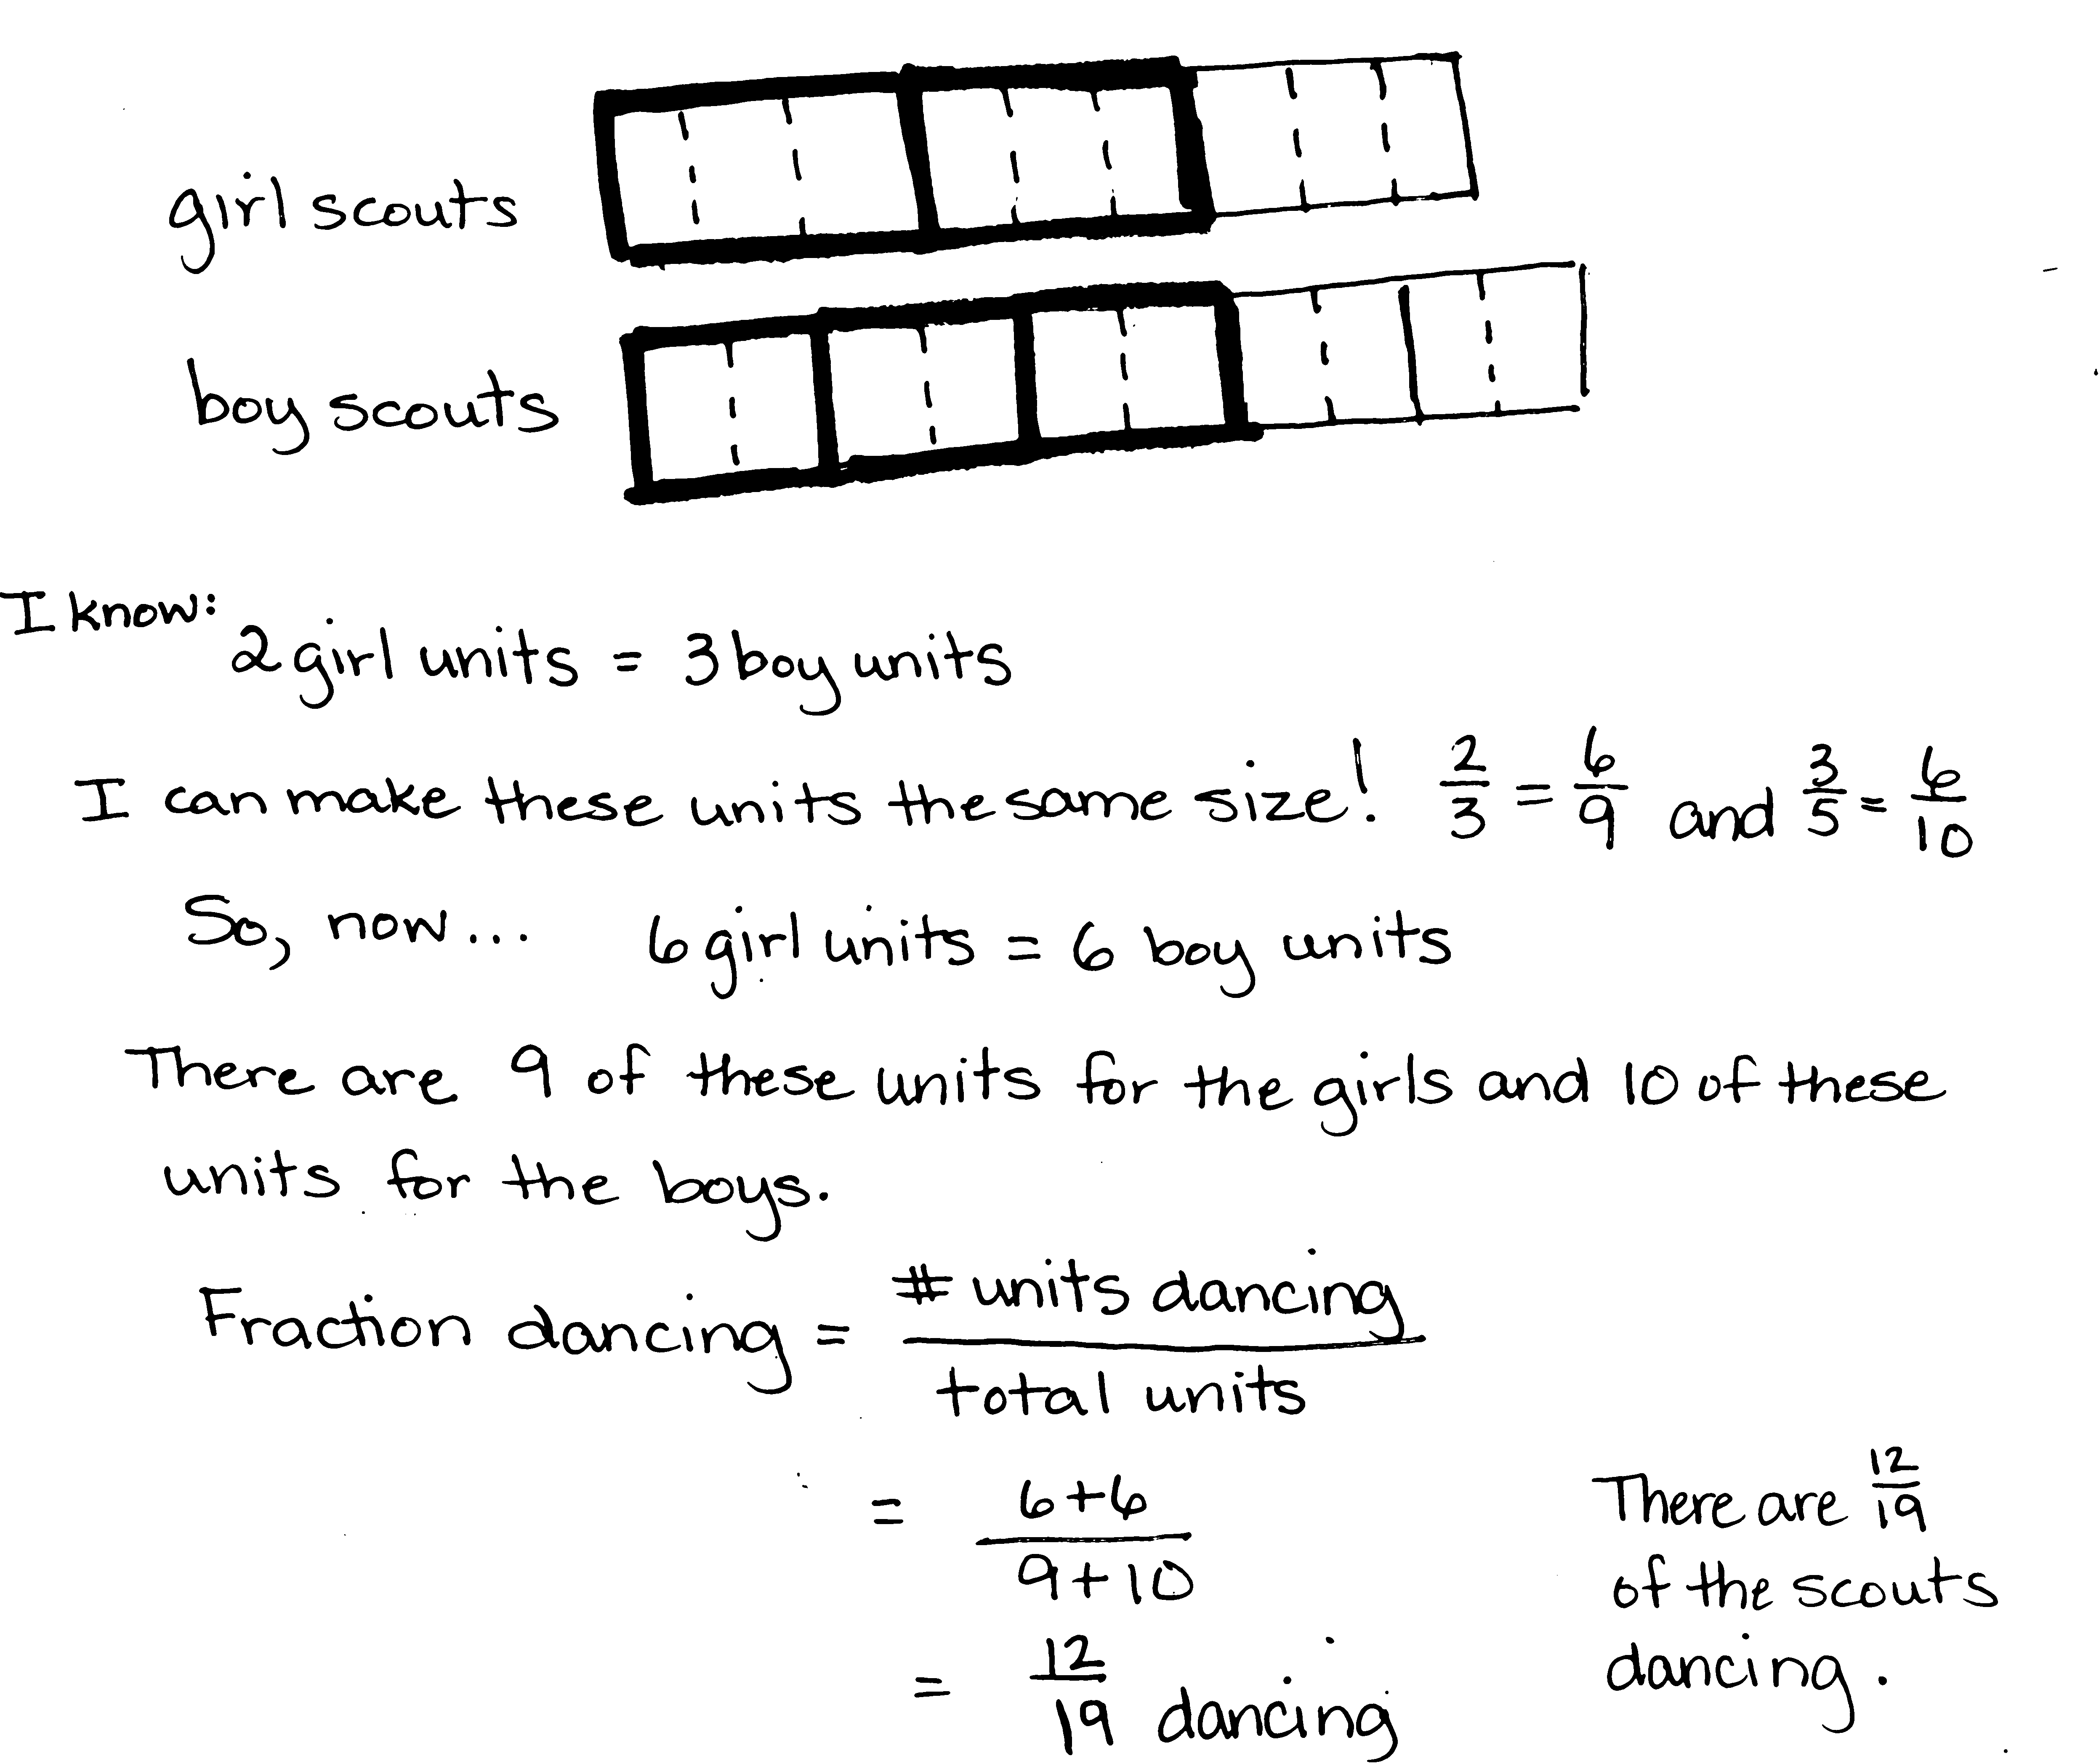 girl scouts
boy scouts
I know:
2 girl units = 3 boy units
I can make these units the same size! 2/3 = 6/9 and 3/5 = 6/10
So, now... 6 girl units = 6 boy units
There are 9 of these units for the girls and 10 of these
units for the boys.
Fraction dancing = # units dancing / total units
= 6+6 / 9+10
= 12/19 dancing
There are 12/19
of the scouts
dancing.